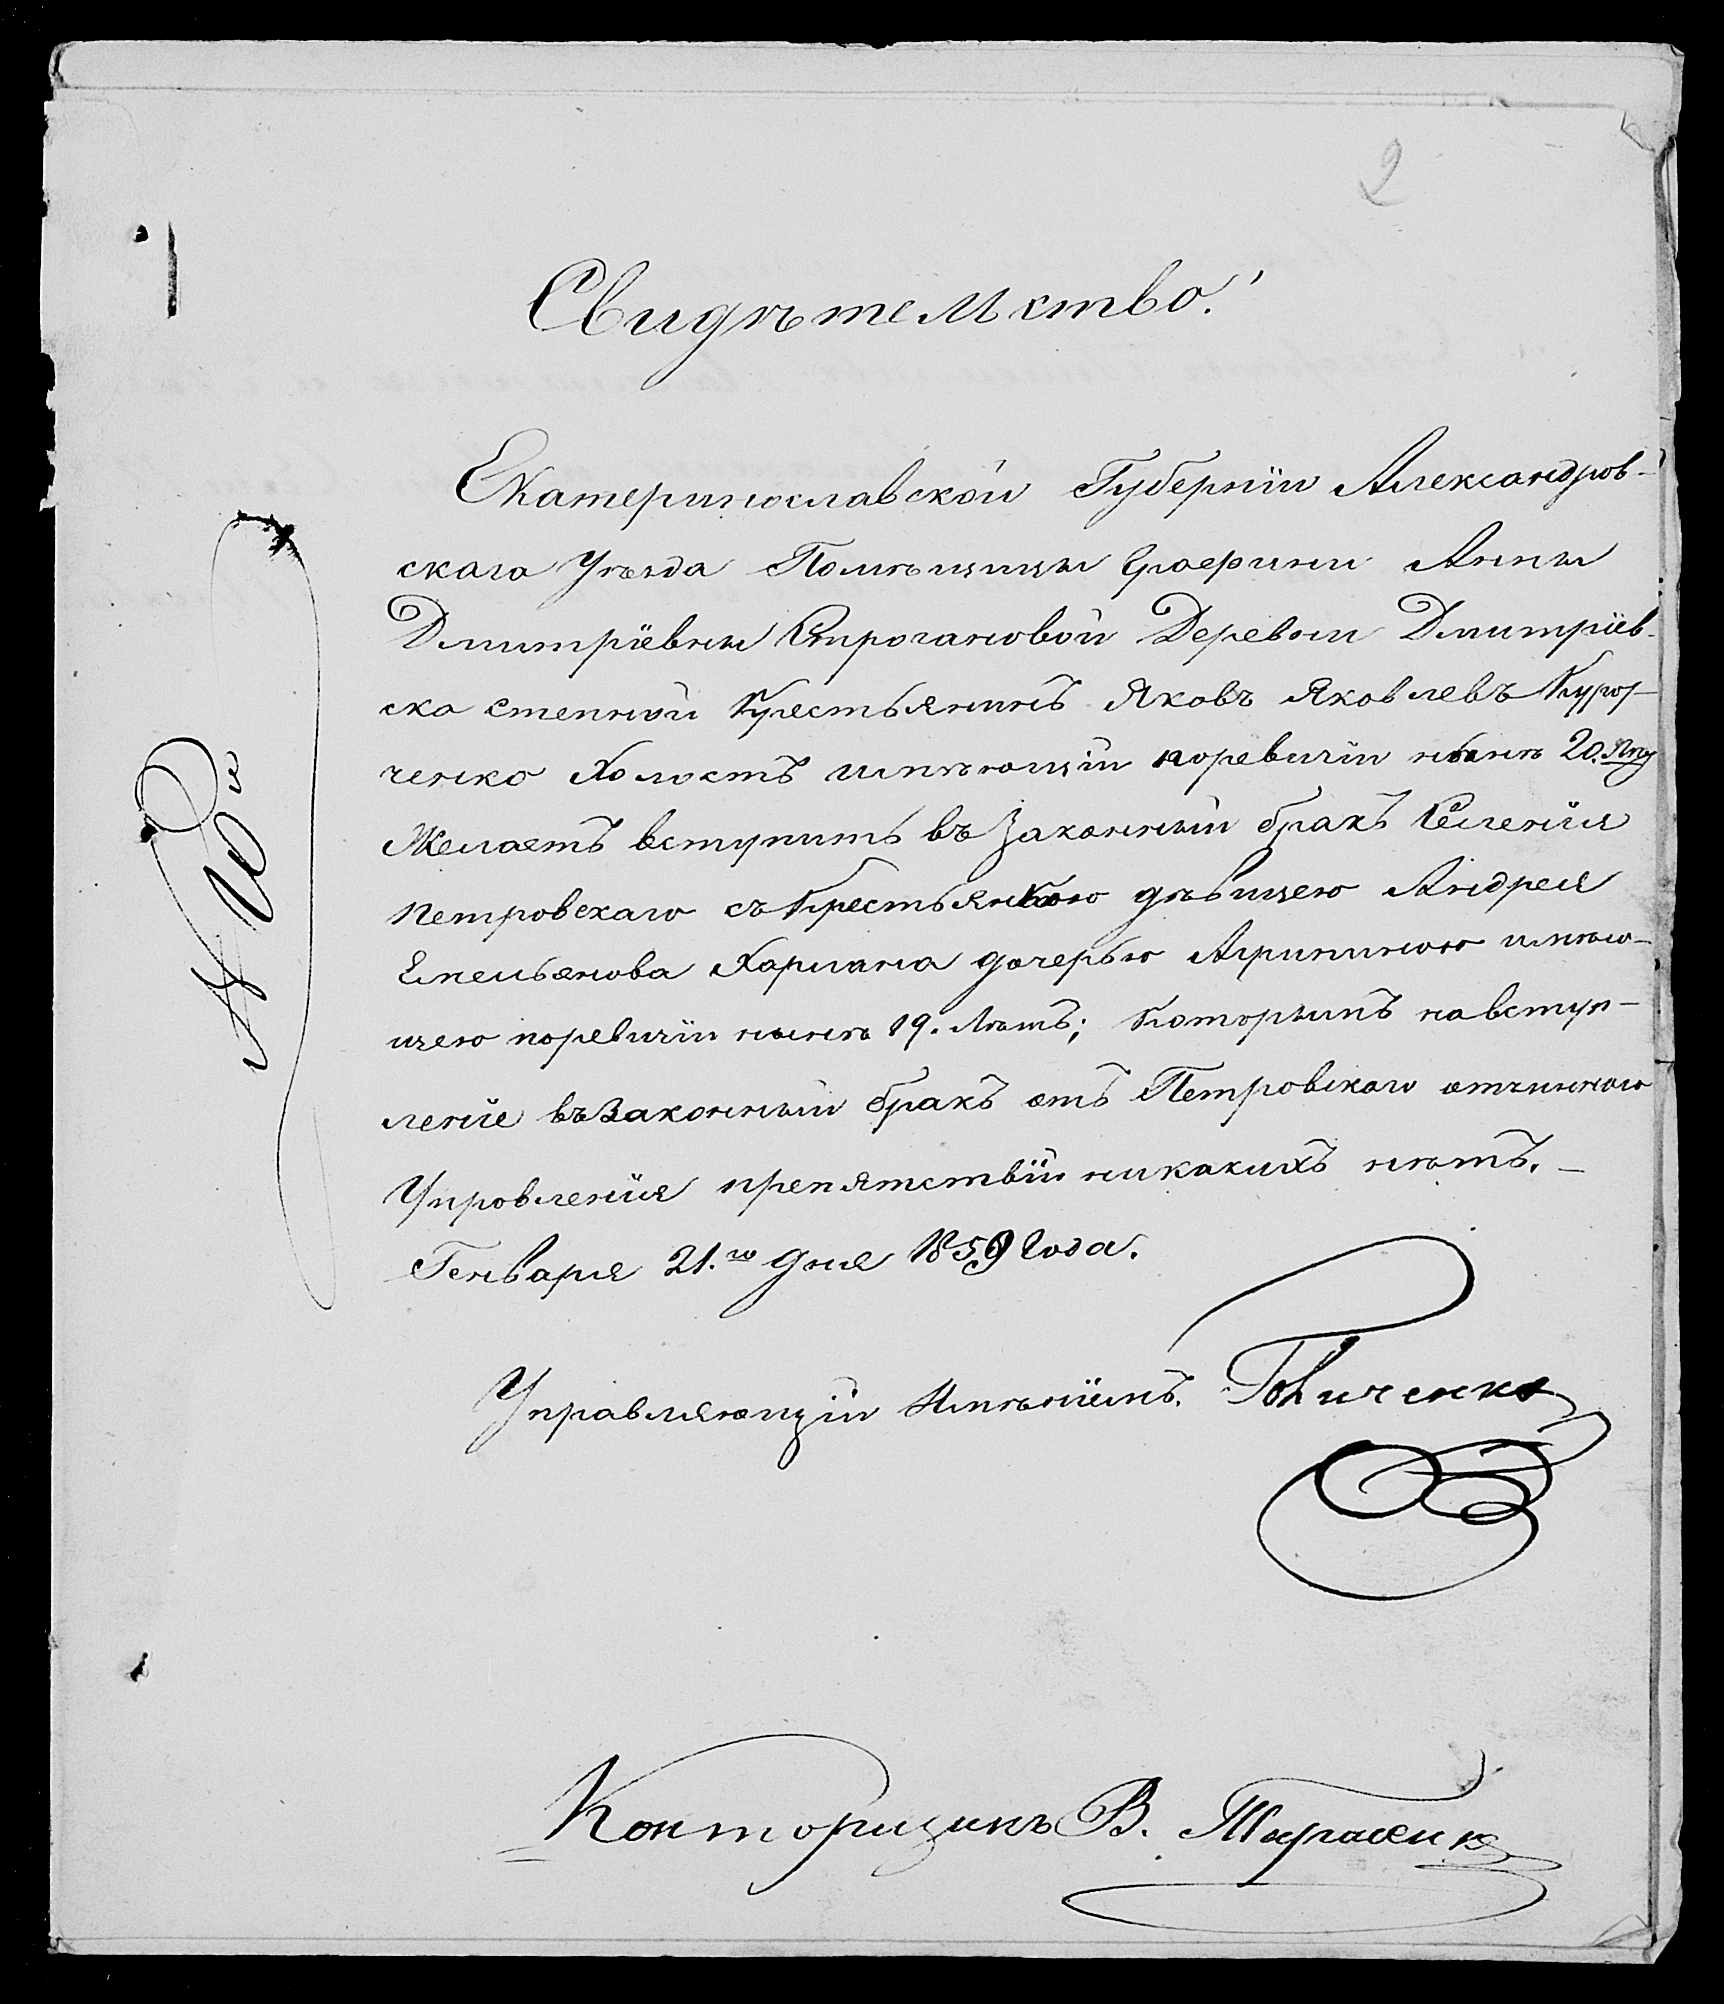 2
Свидѣтельство!
Екатеринославской Губерніи Александров-
скаго Уѣзда Помѣщицы Графини Анны
Дмитріевны Строгановой Деревни Дмитріев-
ска степной Крестьянинъ Яковъ Яковлевъ
ченко Холостъ имѣющій поревизіи нынѣ 20.
Желаетъ вступить въ законный бракъ Селенія
Петровскаго съ Крестьянкою дѣвицею Андрея
Емельянова Хармана дочерью Агрипиною имѣю-
щею поревизіи нынѣ 19. Лѣтъ; Которымъ навступ-
леніе въ Законный бракъ отъ Петровскаго отчиннаго
Управленія препятствій никакихъ нѣтъ. —
Генваря 21.го дня 1859 Года.
Управляющій Имѣніемъ.
Конторщикъ В.